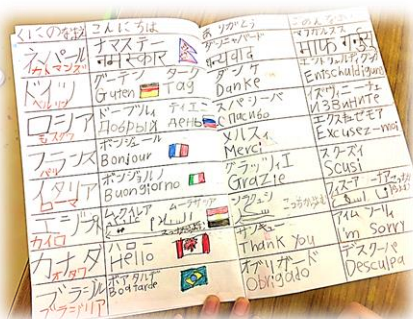 くにのなまえ こんにちは ありがとう ごめんなさい
ネパール
カトマンズ
ナマステー
नमस्कार
ダンニャバード
ドイツ
ベルリン
グーテン ターク
Guten Tag
ダンケ
Danke
Entschuldigung
ロシア
モスクワ
ドーブルィ ディエニ
Добрый день
スパシーバ
Спасибо
イズヴィニーチェ
Извините
フランス
パリ
ボンジュール
Bonjour
メルスィ
Merci
エクスキュゼモア
Excusez-moi
イタリア
ローマ
ボンジョルノ
Buongiorno
グラッツィエ
Grazie
スクーズィ
Scusi
エジプト
カイロ
カナダ
オタワ
ハロー
Hello
サンキュー
Thank You
アイム ソーリー
I'm sorry
ブラジル
ブラジリア
ボアタルデ
Boa tarde
オブリガード
Obrigado
デスクーパ
Desculpa